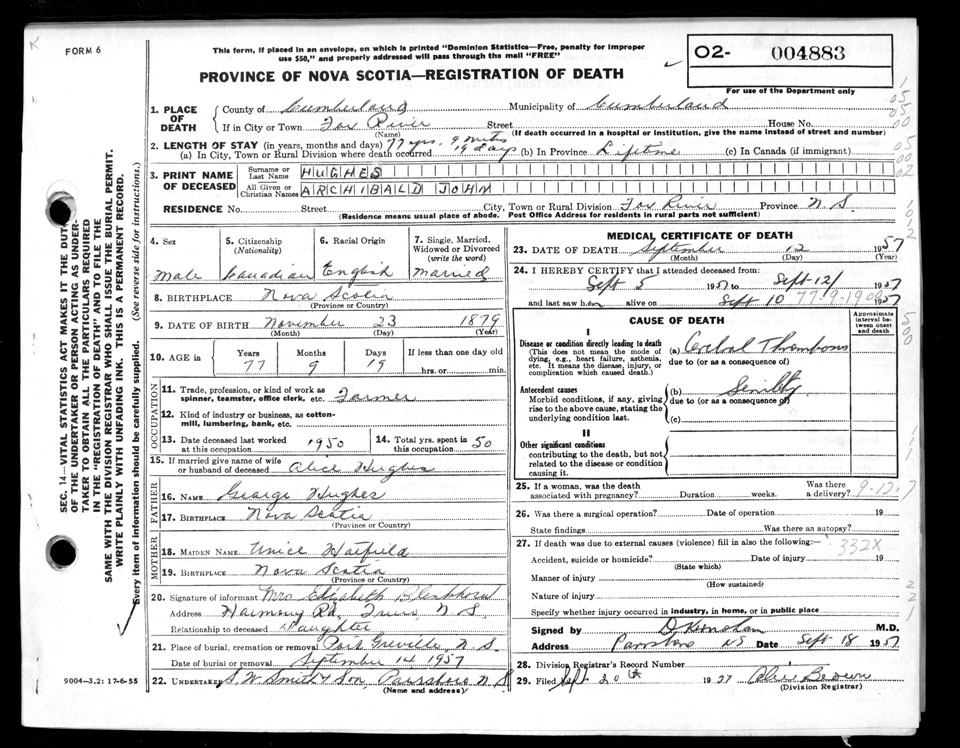 K
FORM 6
This form, if placed in an envelope, on which is printed "Dominion Statistics—Free, penalty for improper
use $50," and properly addressed will pass through the mail "FREE"
PROVINCE OF NOVA SCOTIA—REGISTRATION OF DEATH
02- 004883
For use of the Department only
1. PLACE OF DEATH County of Cumberland Municipality of Cumberland
If in City or Town Fox River Street House No.
(Name) (If death occurred in a hospital or institution, give the name instead of street and number)
2. LENGTH OF STAY (in years, months and days) 77 yrs. 9 mths 19 days
(a) In City, Town or Rural Division where death occurred (b) In Province Lifetime (c) In Canada (if immigrant)
3. PRINT NAME OF DECEASED
Surname or Last Name HUGHES
All Given or Christian Names ARCHIBALD JOHN
RESIDENCE No. Street City, Town or Rural Division Fox River Province N.S.
(Residence means usual place of abode. Post Office Address for residents in rural parts not sufficient)
4. Sex
Male
5. Citizenship (Nationality)
Canadian
6. Racial Origin
English
7. Single, Married, Widowed or Divorced (write the word)
Married
8. BIRTHPLACE Nova Scotia
(Province or Country)
9. DATE OF BIRTH November 23 1879
(Month) (Day) (Year)
10. AGE in
Years Months Days If less than one day old
77 9 19 hrs. or min.
OCCUPATION
11. Trade, profession, or kind of work as spinner, teamster, office clerk, etc. Farmer
12. Kind of industry or business, as cotton-mill, lumbering, bank, etc.
13. Date deceased last worked at this occupation 1950
14. Total yrs. spent in this occupation 50
15. If married give name of wife or husband of deceased Alice Hughes
FATHER
16. NAME George Hughes
17. BIRTHPLACE Nova Scotia
(Province or Country)
MOTHER
18. MAIDEN NAME Unice Hatfield
19. BIRTHPLACE Nova Scotia
(Province or Country)
20. Signature of informant Mrs Elizabeth Blenkhorn
Address Harmony Rd, Truro, N.S.
Relationship to deceased Daughter
21. Place of burial, cremation or removal Port Greville, N.S.
Date of burial or removal September 14 1957
22. UNDERTAKER S. W. Smith & Son, Parrsboro N.S.
(Name and address)
MEDICAL CERTIFICATE OF DEATH
23. DATE OF DEATH September 12 1957
(Month) (Day) (Year)
24. I HEREBY CERTIFY that I attended deceased from:
Sept 5 1957 to Sept 12/ 1957
and last saw him alive on Sept 10 1957
77-9-19
CAUSE OF DEATH
Approximate interval between onset and death
I
Disease or condition directly leading to death
(This does not mean the mode of dying, e.g., heart failure, asthenia, etc. It means the disease, injury, or complication which caused death.)
(a) Cerebral Thrombosis
due to (or as a consequence of)
Antecedent causes
Morbid conditions, if any, giving rise to the above cause, stating the underlying condition last.
(b) Senility
due to (or as a consequence of)
(c)
II
Other significant conditions
contributing to the death, but not related to the disease or condition causing it.
25. If a woman, was the death associated with pregnancy? Duration weeks. Was there a delivery?
9-12-7
26. Was there a surgical operation? Date of operation 19
State findings Was there an autopsy?
27. If death was due to external causes (violence) fill in also the following:—
332X
Accident, suicide or homicide? Date of injury 19
(State which)
Manner of injury
(How sustained)
Nature of injury
Specify whether injury occurred in industry, in home, or in public place
Signed by M.D.
Address Parrsboro NS Date Sept 18 1957
28. Division Registrar's Record Number
29. Filed Sept 20th 1957
(Division Registrar)
9004—3.2: 17-6-55
SEC. 14—VITAL STATISTICS ACT MAKES IT THE DUTY
OF THE UNDERTAKER OR PERSON ACTING AS UNDER-
TAKER TO OBTAIN ALL THE PARTICULARS REQUIRED
IN THE "REGISTRATION OF DEATH" AND TO FILE THE
SAME WITH THE DIVISION REGISTRAR WHO SHALL ISSUE THE BURIAL PERMIT.
WRITE PLAINLY WITH UNFADING INK. THIS IS A PERMANENT RECORD.
Every item of information should be carefully supplied. (See reverse side for instructions.)